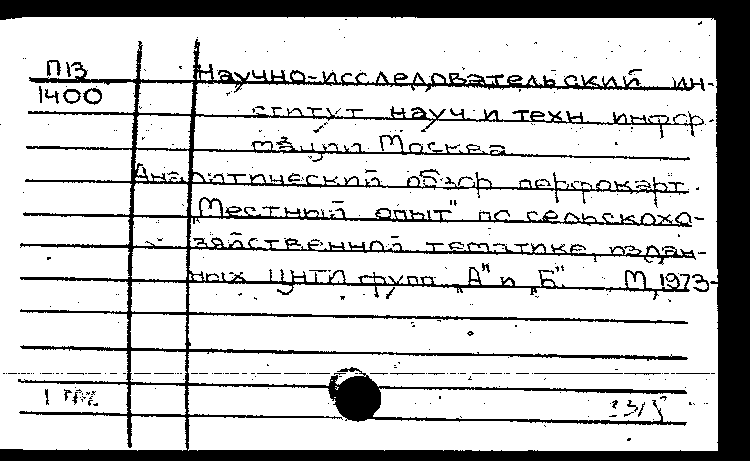 П13
1400
Научно-исследовательский ин-
ститут науч и техн информ
мации Москва
Аналитический обзор перфокарт
„Местный опыт" по сельскохо-
зяйственной тематике, издан-
ных ЦНТИ групп „А" и „Б". М, 1973-
1